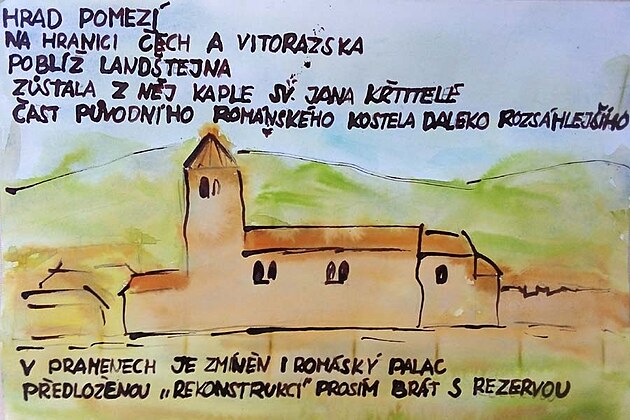 HRAD POMEZÍ
NA HRANICI ČECH A VITORAZSKA
POBLÍŽ LANDŠTEJNA
ZŮSTALA Z NĚJ KAPLE SV. JANA KŘTITELE
ČÁST PŮVODNÍHO ROMÁNSKÉHO KOSTELA DALEKO ROZSÁHLEJŠÍHO
V PRAMENECH JE ZMÍNĚN I ROMÁSKÝ PALAC
PŘEDLOŽENOU „REKONSTRUKCI" PROSÍM BRÁT S REZERVOU